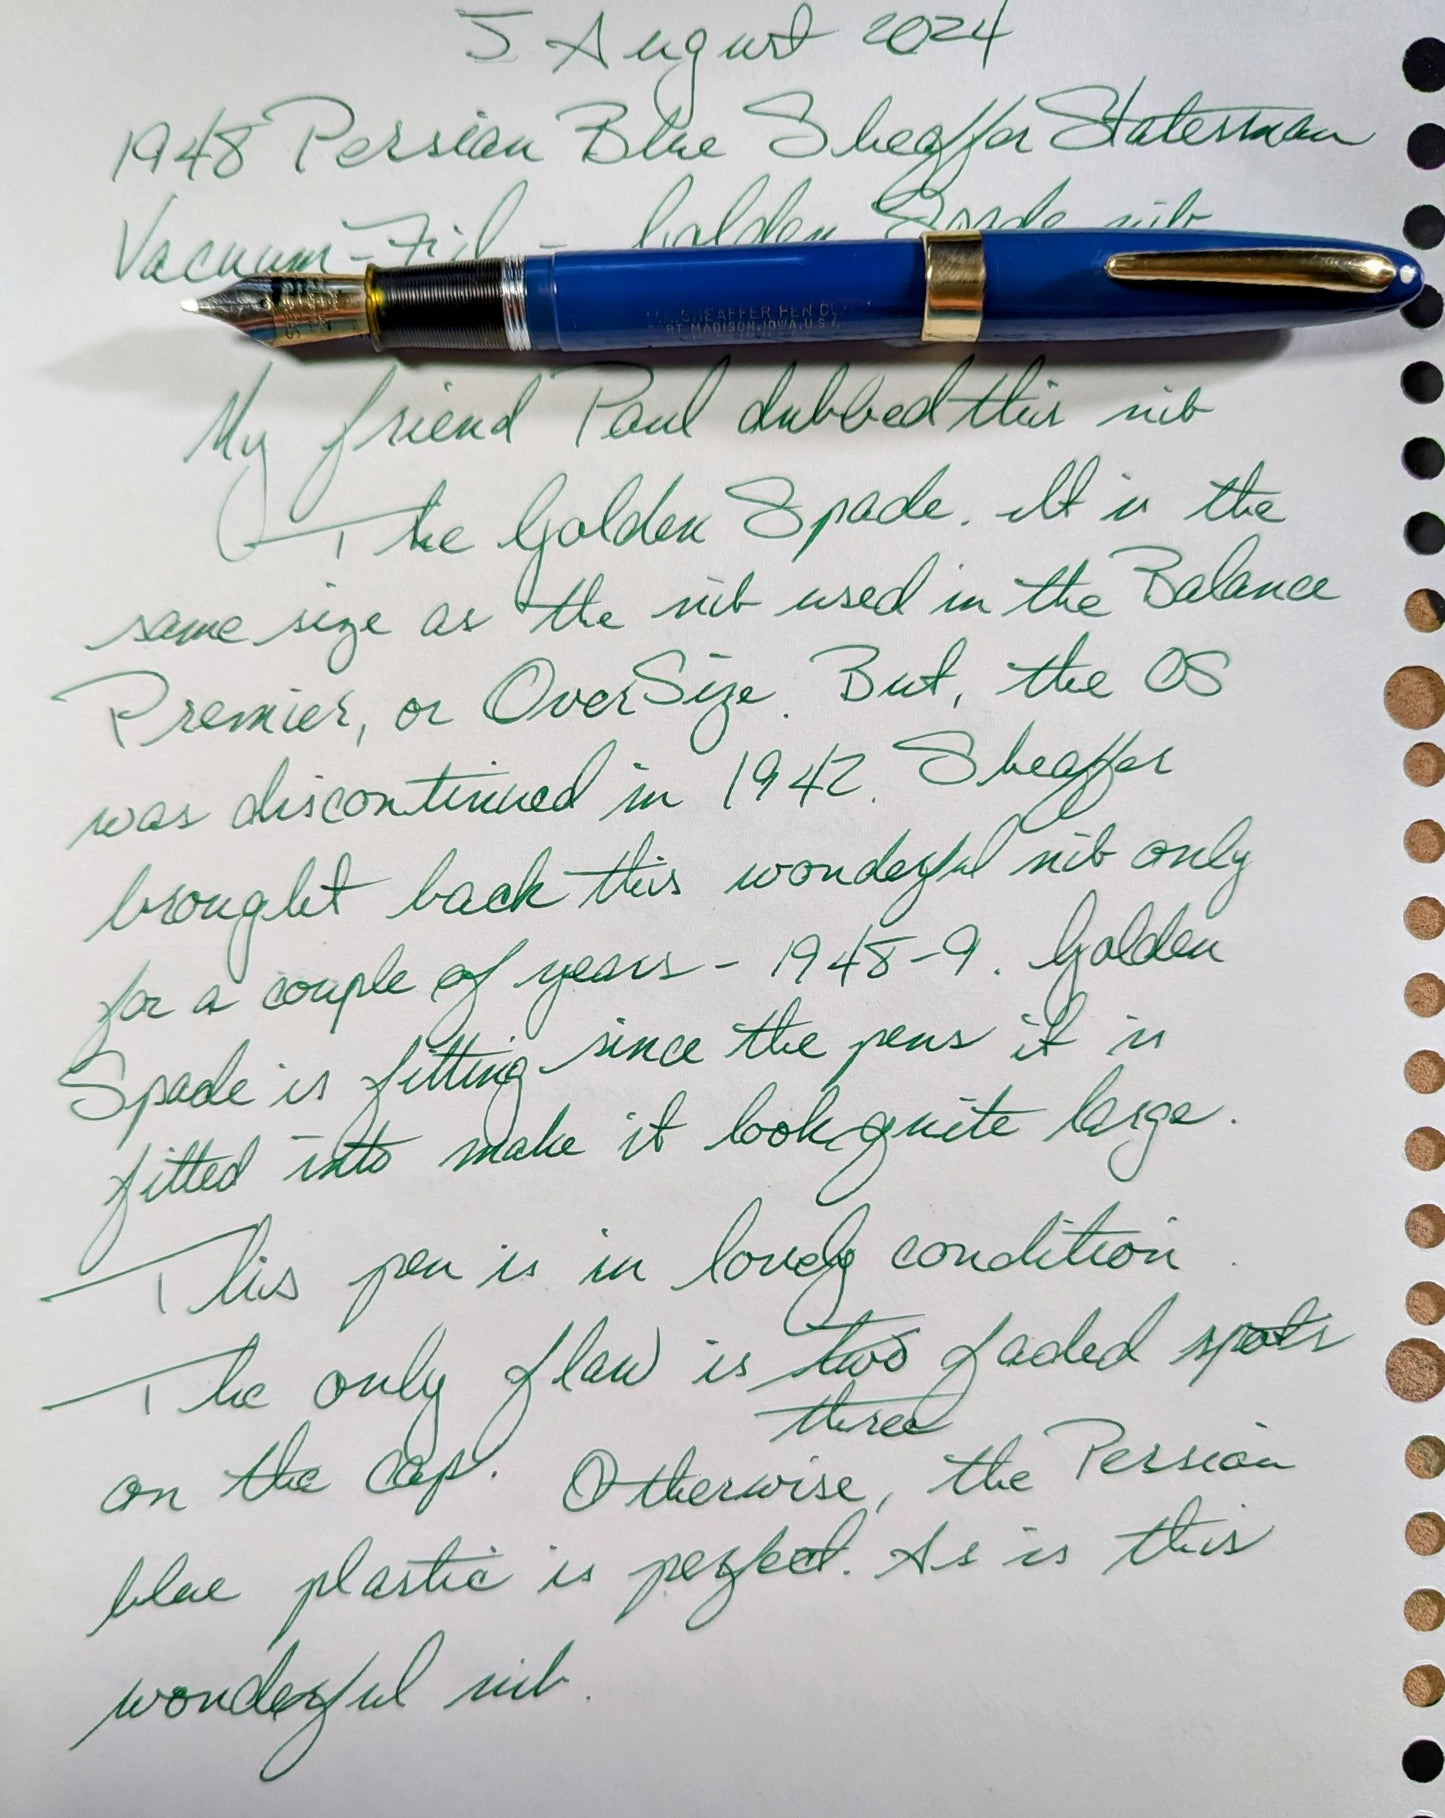 5 August 2024
1948 Persian Blue Sheaffer Statesman
Vacuum-Fil - Golden Spade nib
SHEAFFER PEN CO
FORT MADISON, IOWA, U.S.A.
My friend Paul dubbed this nib
The Golden Spade. It is the
same size as the nib used in the Balance
Premier, or OverSize. But, the OS
was discontinued in 1942. Sheaffer
brought back this wonderful nib only
for a couple of years - 1948-9. Golden
Spade is fitting since the pens it is
fitted into make it look quite large.
This pen is in lovely condition.
The only flaw is two faded spots
three
on the cap. Otherwise, the Persian
blue plastic is perfect. As is this
wonderful nib.